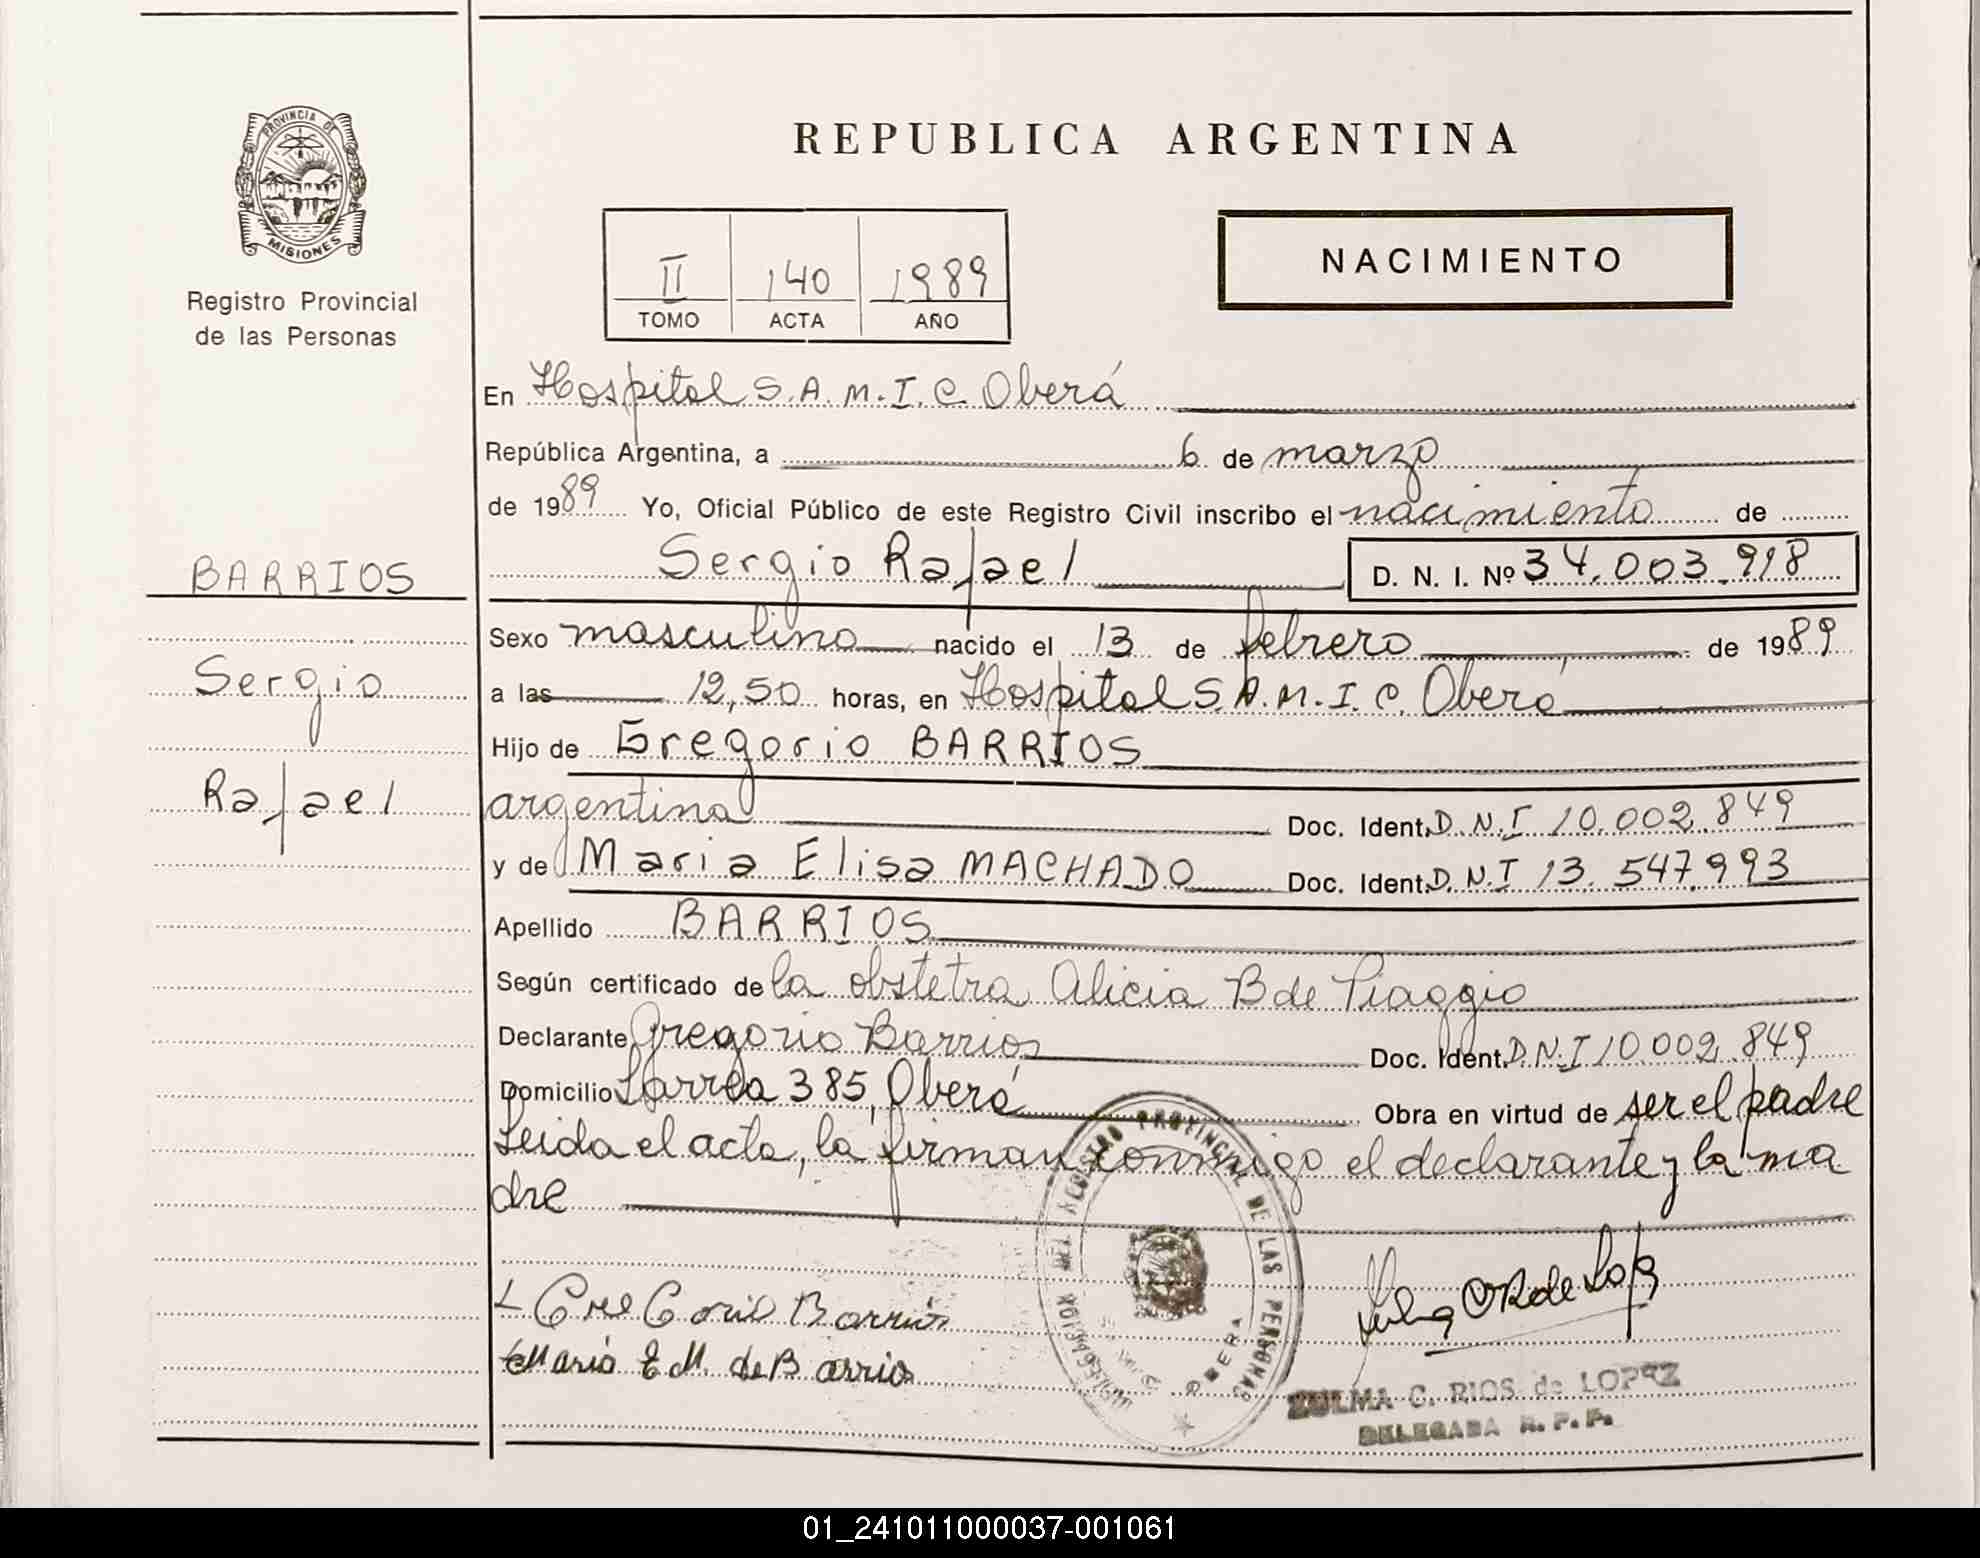 PROVINCIA DE
MISIONES
Registro Provincial
de las Personas
BARRIOS
Sergio
Rafael
REPUBLICA ARGENTINA
II 140 1989
TOMO ACTA AÑO
NACIMIENTO
En Hospital S.A.M.I.C. Oberá
República Argentina, a 6 de marzo
de 1989 Yo, Oficial Público de este Registro Civil inscribo el nacimiento de
Sergio Rafael D. N. I. Nº 34.003.918
Sexo masculino nacido el 13 de febrero de 1989
a las 12,50 horas, en Hospital S.A.M.I.C. Oberá
Hijo de Gregorio BARRIOS
argentina Doc. Ident. D.N.I 10.002.849
y de Maria Elisa MACHADO Doc. Ident. D.N.I 13.547.993
Apellido BARRIOS
Según certificado de la obstetra Alicia B de Piaggio
Declarante Gregorio Barrios Doc. Ident. D.N.I 10.002.849
Domicilio Larrea 385, Oberá Obra en virtud de ser el padre
Leida el acta, la firman conmigo el declarante y la ma
dre
REGISTRO PROVINCIAL DE LAS PERSONAS
OBERA
Barrios
Maria E M. de Barrio
ZULMA C. RIOS de LOPEZ
DELEGADA R. P. P.
01_241011000037-001061